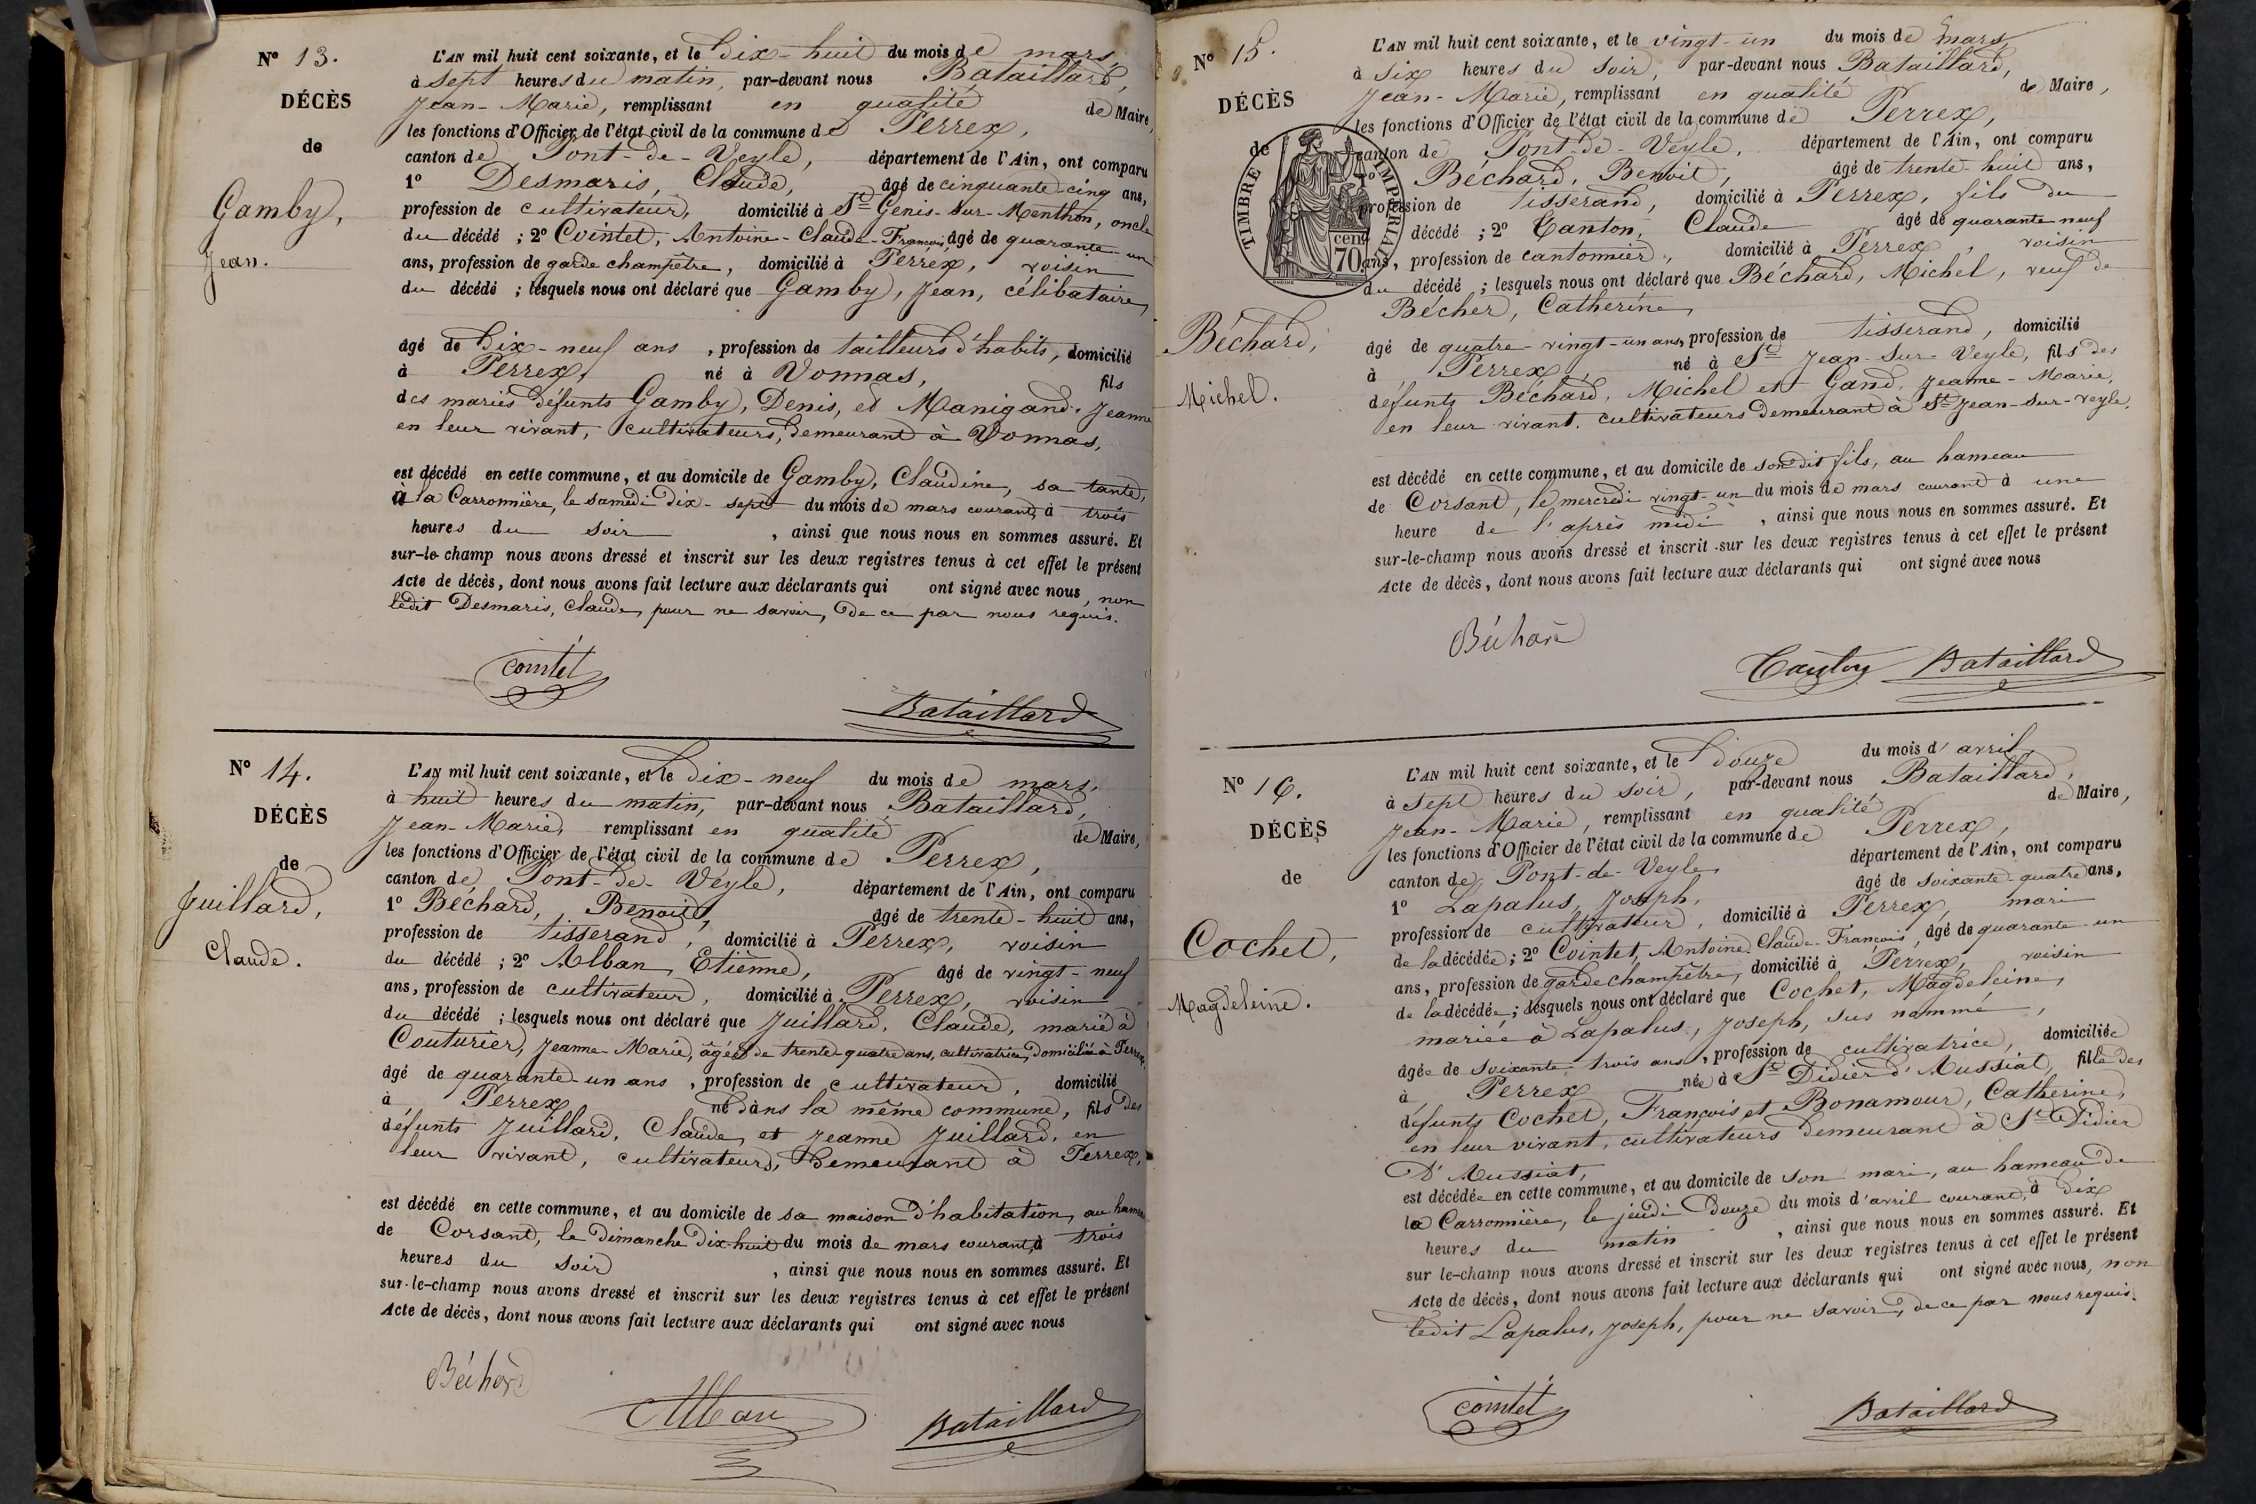 N° 13.
DÉCÈS
de
Gamby,
Jean.
L'AN mil huit cent soixante, et le dix-huit du mois de mars,
à sept heures du matin, par-devant nous Bataillard,
Jean-Marie, remplissant en qualité de Maire,
les fonctions d'Officier de l'état civil de la commune de Perrex,
canton de Pont-de-Veyle, département de l'Ain, ont comparu
1° Desmaris, Claude, âgé de cinquante-cinq ans,
profession de cultivateur, domicilié à St Genis-sur-Menthon, oncle
du décédé ; 2° Cointet, Antoine-Claude-François, âgé de quarante-un
ans, profession de garde champêtre, domicilié à Perrex, voisin
du décédé ; lesquels nous ont déclaré que Gamby, Jean, célibataire,
âgé de dix-neuf ans, profession de tailleurs d'habits, domicilié
à Perrex, né à Vonnas, fils
des mariés défunts Gamby, Denis, et Manigand, Jeanne
en leur vivant, cultivateurs, demeurant à Vonnas,
est décédé en cette commune, et au domicile de Gamby, Claudine, sa tante,
à la Carronnière, le samedi dix-sept du mois de mars courant, à trois
heures du soir, ainsi que nous nous en sommes assuré. Et
sur-le-champ nous avons dressé et inscrit sur les deux registres tenus à cet effet le présent
Acte de décès, dont nous avons fait lecture aux déclarants qui ont signé avec nous, non
ledit Desmaris, Claude, pour ne savoir, de ce par nous requis.
Cointet
Bataillard
N° 14.
DÉCÈS
de
Juillard,
Claude.
L'AN mil huit cent soixante, et le dix-neuf du mois de mars,
à huit heures du matin, par-devant nous Bataillard,
Jean-Marie, remplissant en qualité de Maire,
les fonctions d'Officier de l'état civil de la commune de Perrex,
canton de Pont-de-Veyle, département de l'Ain, ont comparu
1° Béchard, Benoit, âgé de trente-huit ans,
profession de tisserand, domicilié à Perrex, voisin
du décédé ; 2° Alban, Etienne, âgé de vingt-neuf
ans, profession de cultivateur, domicilié à Perrex, voisin
du décédé ; lesquels nous ont déclaré que Juillard, Claude, marié à
Couturier, Jeanne-Marie, âgée de trente-quatre ans, cultivatrice, domiciliée à Perrex,
âgé de quarante-un ans, profession de cultivateur, domicilié
à Perrex né dans la même commune, fils des
défunts Juillard, Claude, et Jeanne Juillard, en
leur vivant, cultivateurs, demeurant à Perrex,
est décédé en cette commune, et au domicile de sa maison d'habitation, au hameau
de Corsant, le dimanche dix-huit du mois de mars courant, à trois
heures du soir, ainsi que nous nous en sommes assuré. Et
sur-le-champ nous avons dressé et inscrit sur les deux registres tenus à cet effet le présent
Acte de décès, dont nous avons fait lecture aux déclarants qui ont signé avec nous
Béchard
Alban
Bataillard
N° 15.
DÉCÈS
de
Béchard,
Michel.
TIMBRE IMPÉRIAL
70 cen.
L'AN mil huit cent soixante, et le vingt-un du mois de mars,
à six heures du soir, par-devant nous Bataillard,
Jean-Marie, remplissant en qualité de Maire,
les fonctions d'Officier de l'état civil de la commune de Perrex,
canton de Pont-de-Veyle, département de l'Ain, ont comparu
1° Béchard, Benoit, âgé de trente-huit ans,
profession de tisserand, domicilié à Perrex, fils du
décédé ; 2° Canton, Claude âgé de quarante neuf
ans, profession de cantonnier, domicilié à Perrex, voisin
du décédé ; lesquels nous ont déclaré que Béchard, Michel, veuf de
Bécher, Catherine,
âgé de quatre-vingt-un ans, profession de tisserand, domicilié
à Perrex, né à St Jean-sur-Veyle, fils des
défunts Béchard, Michel et Gand, Jeanne-Marie,
en leur vivant, cultivateurs demeurant à St Jean-sur-Veyle,
est décédé en cette commune, et au domicile de son dit fils, au hameau
de Corsant, le mercredi vingt-un du mois de mars courant à une
heure de l'après midi, ainsi que nous nous en sommes assuré. Et
sur-le-champ nous avons dressé et inscrit sur les deux registres tenus à cet effet le présent
Acte de décès, dont nous avons fait lecture aux déclarants qui ont signé avec nous
Béchard
Canton
Bataillard
N° 16.
DÉCÈS
de
Cochet,
Magdeleine.
L'AN mil huit cent soixante, et le douze du mois d'avril,
à sept heures du soir, par-devant nous Bataillard,
Jean-Marie, remplissant en qualité de Maire,
les fonctions d'Officier de l'état civil de la commune de Perrex,
canton de Pont-de-Veyle, département de l'Ain, ont comparu
1° Lapalus, Joseph, âgé de soixante-quatre ans,
profession de cultivateur, domicilié à Perrex, mari
de la décédée ; 2° Cointet, Antoine Claude-François, âgé de quarante-un
ans, profession de garde champêtre, domicilié à Perrex, voisin
de la décédée ; lesquels nous ont déclaré que Cochet, Magdeleine,
mariée à Lapalus, Joseph, sus nommé,
âgée de soixante-trois ans, profession de cultivatrice, domiciliée
à Perrex née à St Didier d'Aussiat, fille des
défunts Cochet, François et Bonamour, Catherine,
en leur vivant, cultivateurs demeurant à St Didier
d'Aussiat,
est décédée en cette commune, et au domicile de son mari, au hameau de
la Carronnière, le jeudi douze du mois d'avril courant, à dix
heures du matin, ainsi que nous nous en sommes assuré. Et
sur le-champ nous avons dressé et inscrit sur les deux registres tenus à cet effet le présent
Acte de décès, dont nous avons fait lecture aux déclarants qui ont signé avec nous, non
ledit Lapalus, Joseph, pour ne savoir, de ce par nous requis.
Cointet
Bataillard